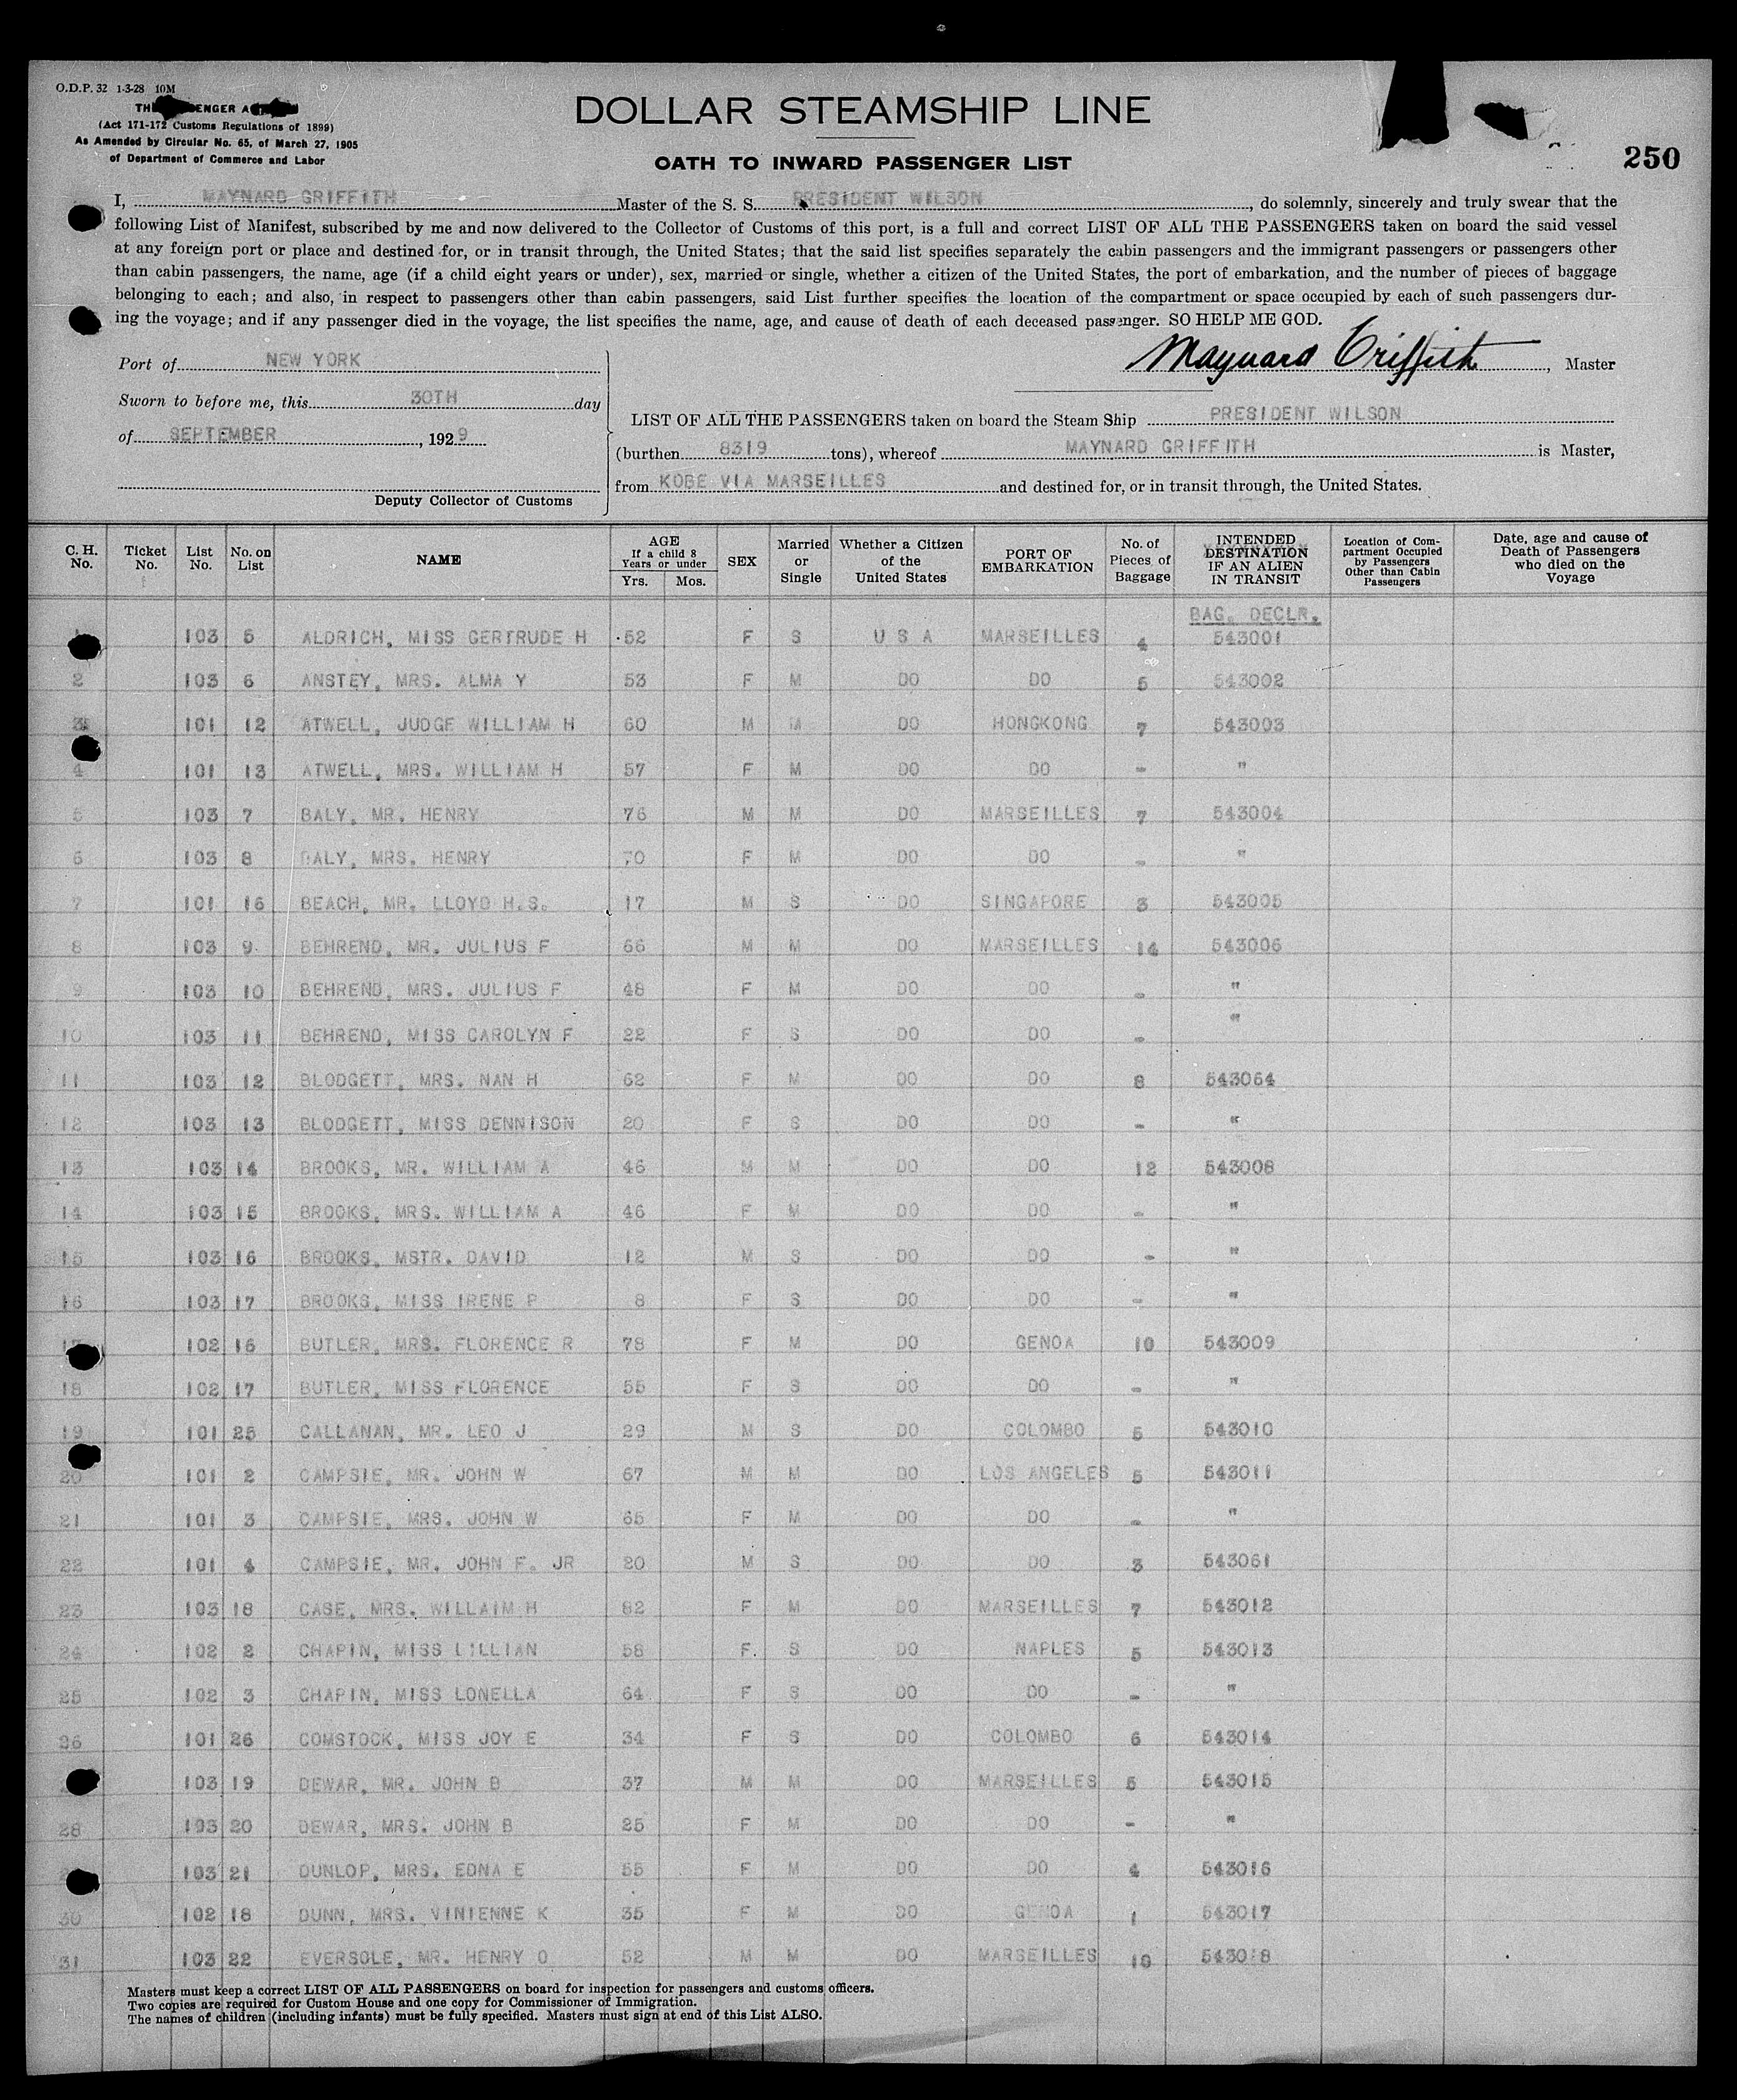 O.D.P. 32 1-3-28 10M
ENGER A
(Act 171-172 Customs Regulations of 1899)
As Amended by Circular No. 65, of March 27, 1905
of Department of Commerce and Labor
DOLLAR STEAMSHIP LINE
OATH TO INWARD PASSENGER LIST
250
I, MAYNARD GRIFFITH Master of the S. S. PRESIDENT WILSON, do solemnly, sincerely and truly swear that the
following List of Manifest, subscribed by me and now delivered to the Collector of Customs of this port, is a full and correct LIST OF ALL THE PASSENGERS taken on board the said vessel
at any foreign port or place and destined for, or in transit through, the United States; that the said list specifies separately the cabin passengers and the immigrant passengers or passengers other
than cabin passengers, the name, age (if a child eight years or under), sex, married or single, whether a citizen of the United States, the port of embarkation, and the number of pieces of baggage
belonging to each; and also, in respect to passengers other than cabin passengers, said List further specifies the location of the compartment or space occupied by each of such passengers dur-
ing the voyage; and if any passenger died in the voyage, the list specifies the name, age, and cause of death of each deceased passenger. SO HELP ME GOD.
Maynard Griffith, Master
Port of NEW YORK
Sworn to before me, this 30TH day
of SEPTEMBER, 1929
Deputy Collector of Customs
LIST OF ALL THE PASSENGERS taken on board the Steam Ship PRESIDENT WILSON
(burthen 8319 tons), whereof MAYNARD GRIFFITH is Master,
from KOBE VIA MARSEILLES and destined for, or in transit through, the United States.
C. H. No. Ticket No. List No. No. on List NAME AGE If a child 8 Years or under Yrs. Mos. SEX Married or Single Whether a Citizen of the United States PORT OF EMBARKATION No. of Pieces of Baggage INTENDED DESTINATION IF AN ALIEN IN TRANSIT Location of Compartment Occupied by Passengers Other than Cabin Passengers Date, age and cause of Death of Passengers who died on the Voyage
BAG. DECLR.
103 5 ALDRICH, MISS GERTRUDE H 52 F S U S A MARSEILLES 4 543001
2 103 6 ANSTEY, MRS. ALMA Y 53 F M DO DO 5 543002
3 101 12 ATWELL, JUDGE WILLIAM H 60 M M DO HONGKONG 7 543003
4 101 13 ATWELL, MRS. WILLIAM H 57 F M DO DO - "
5 103 7 BALY, MR. HENRY 76 M M DO MARSEILLES 7 543004
6 103 8 BALY, MRS. HENRY 70 F M DO DO - "
7 101 16 BEACH, MR. LLOYD H.S. 17 M S DO SINGAPORE 3 543005
8 103 9 BEHREND, MR. JULIUS F 66 M M DO MARSEILLES 14 543006
9 103 10 BEHREND, MRS. JULIUS F 48 F M DO DO - "
10 103 11 BEHREND, MISS CAROLYN F 22 F S DO DO - "
11 103 12 BLODGETT, MRS. NAN H 62 F M DO DO 8 543064
12 103 13 BLODGETT, MISS DENNISON 20 F S DO DO - "
13 103 14 BROOKS, MR. WILLIAM A 46 M M DO DO 12 543008
14 103 15 BROOKS, MRS. WILLIAM A 46 F M DO DO - "
15 103 16 BROOKS, MSTR. DAVID 12 M S DO DO - "
16 103 17 BROOKS, MISS IRENE P 8 F S DO DO - "
17 102 16 BUTLER, MRS. FLORENCE R 78 F M DO GENOA 10 543009
18 102 17 BUTLER, MISS FLORENCE 55 F S DO DO - "
19 101 25 CALLANAN, MR. LEO J 29 M S DO COLOMBO 5 543010
20 101 2 CAMPSIE, MR. JOHN W 67 M M DO LOS ANGELES 5 543011
21 101 3 CAMPSIE, MRS. JOHN W 65 F M DO DO - "
22 101 4 CAMPSIE, MR. JOHN F. JR 20 M S DO DO 3 543061
23 103 18 CASE, MRS. WILLAIM H 62 F M DO MARSEILLES 7 543012
24 102 2 CHAPIN, MISS LILLIAN 58 F. S DO NAPLES 5 543013
25 102 3 CHAPIN, MISS LONELLA 64 F S DO DO - "
26 101 26 COMSTOCK, MISS JOY E 34 F S DO COLOMBO 6 543014
103 19 DEWAR, MR. JOHN B 37 M M DO MARSEILLES 5 543015
28 103 20 DEWAR, MRS. JOHN B 25 F M DO DO - "
103 21 DUNLOP, MRS. EDNA E 55 F M DO DO 4 543016
30 102 18 DUNN, MRS. VINIENNE K 35 F M DO GENOA 1 543017
31 103 22 EVERSOLE, MR. HENRY O 52 M M DO MARSEILLES 10 543018
Masters must keep a correct LIST OF ALL PASSENGERS on board for inspection for passengers and customs officers.
Two copies are required for Custom House and one copy for Commissioner of Immigration.
The names of children (including infants) must be fully specified. Masters must sign at end of this List ALSO.